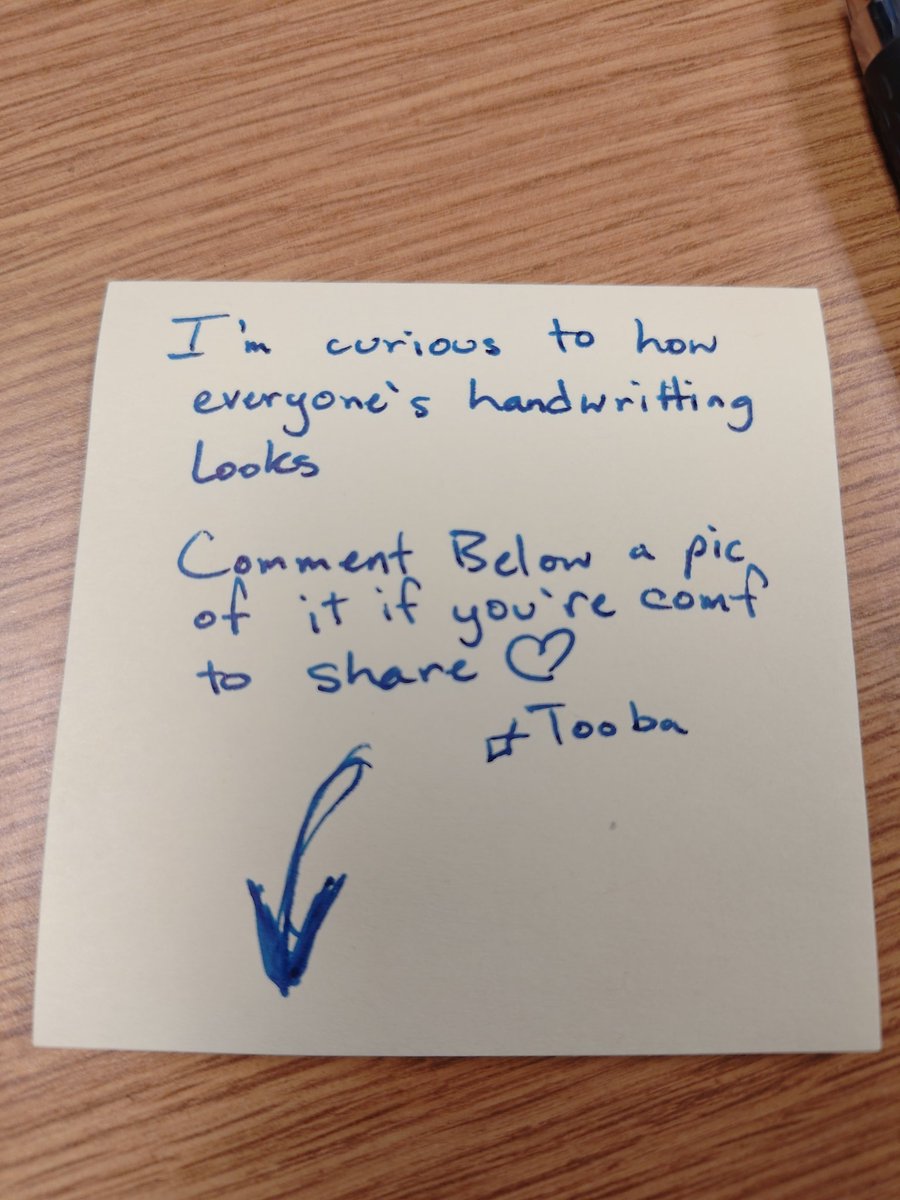 I'm curious to how
everyone's handwritting
Looks
Comment Below a pic
of it if you're comf
to share ♡
Tooba